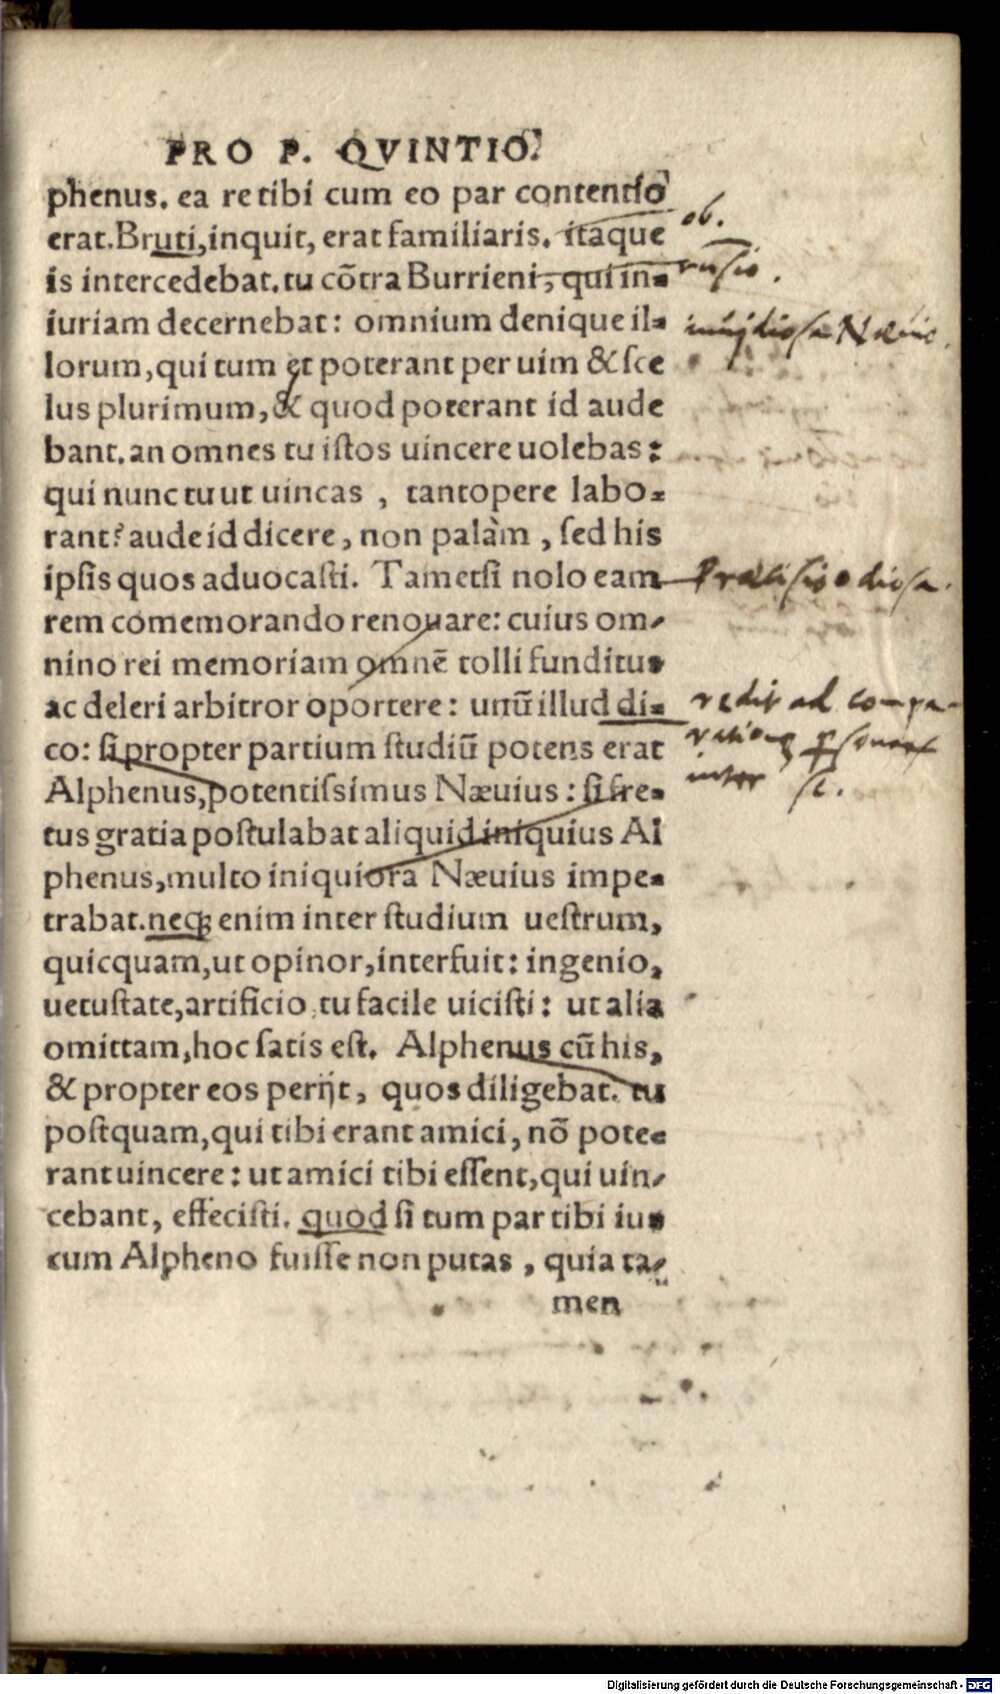 PRO P. QVINTIO.
phenus. ea re tibi cum eo par contentio
erat. Bruti, inquit, erat familiaris. itaque
is intercedebat. tu cõtra Burrieni, qui in-
iuriam decernebat: omnium denique il-
lorum, qui tum et poterant per uim & sce
lus plurimum, & quod poterant id aude
bant. an omnes tu istos uincere uolebas:
qui nunc tu ut uincas, tantopere labo-
rant? aude id dicere, non palàm, sed his
ipsis quos aduocasti. Tametsi nolo eam
rem comemorando renouare: cuius om-
nino rei memoriam omnẽ tolli funditus
ac deleri arbitror oportere: unũ illud di-
co: si propter partium studiũ potens erat
Alphenus, potentissimus Næuius: si fre-
tus gratia postulabat aliquid iniquius Al
phenus, multo iniquiora Næuius impe-
trabat. neq; enim inter studium uestrum,
quicquam, ut opinor, interfuit: ingenio,
uetustate, artificio, tu facile uicisti: ut alia
omittam, hoc satis est. Alphenus cũ his,
& propter eos perijt, quos diligebat. tu
postquam, qui tibi erant amici, nõ pote-
rant uincere: ut amici tibi essent, qui uin-
cebant, effecisti. quod si tum par tibi ius
cum Alpheno fuisse non putas, quia ta-
men
ob.
Præcisio odiosa.
redit ad compa-
inter se.
Digitalisierung gefördert durch die Deutsche Forschungsgemeinschaft - DFG